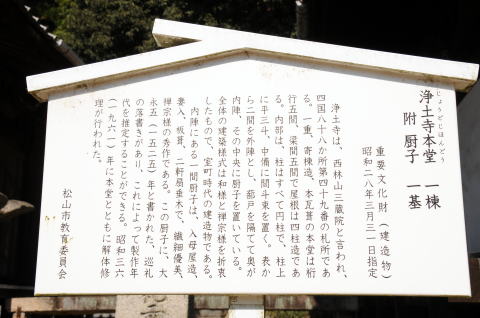 じょうどじほんどう
浄土寺本堂 一棟
附 厨子 一基
重要文化財（建造物）
昭和二八年三月三一日指定
浄土寺は、西林山三蔵院と言われ、
四国八十八か所第四十九番の札所であ
る。一重、寄棟造、本瓦葺の本堂は桁
行五間、梁間五間で屋根は四柱造であ
る。内部は、柱はすべて円柱で、柱上
に平三斗、中備に間斗束を置く。表か
ら二間を外陣とし、蔀戸を隔てて奥が
内陣、その中央に厨子を置いている。
全体の建築様式は和様と禅宗様を折衷
したもので、室町時代の建造物である。
内陣にある一間厨子は、入母屋造、
妻入、板葺、二軒扇垂木で、繊細優美、
禅宗様の秀作である。この厨子に、大
永五（一五二五）年と書かれた、巡礼
の落書きがあり、これによって製作年
代を推定することができる。昭和三六
（一九六一）年に本堂とともに解体修
理が行われた。
松山市教育委員会